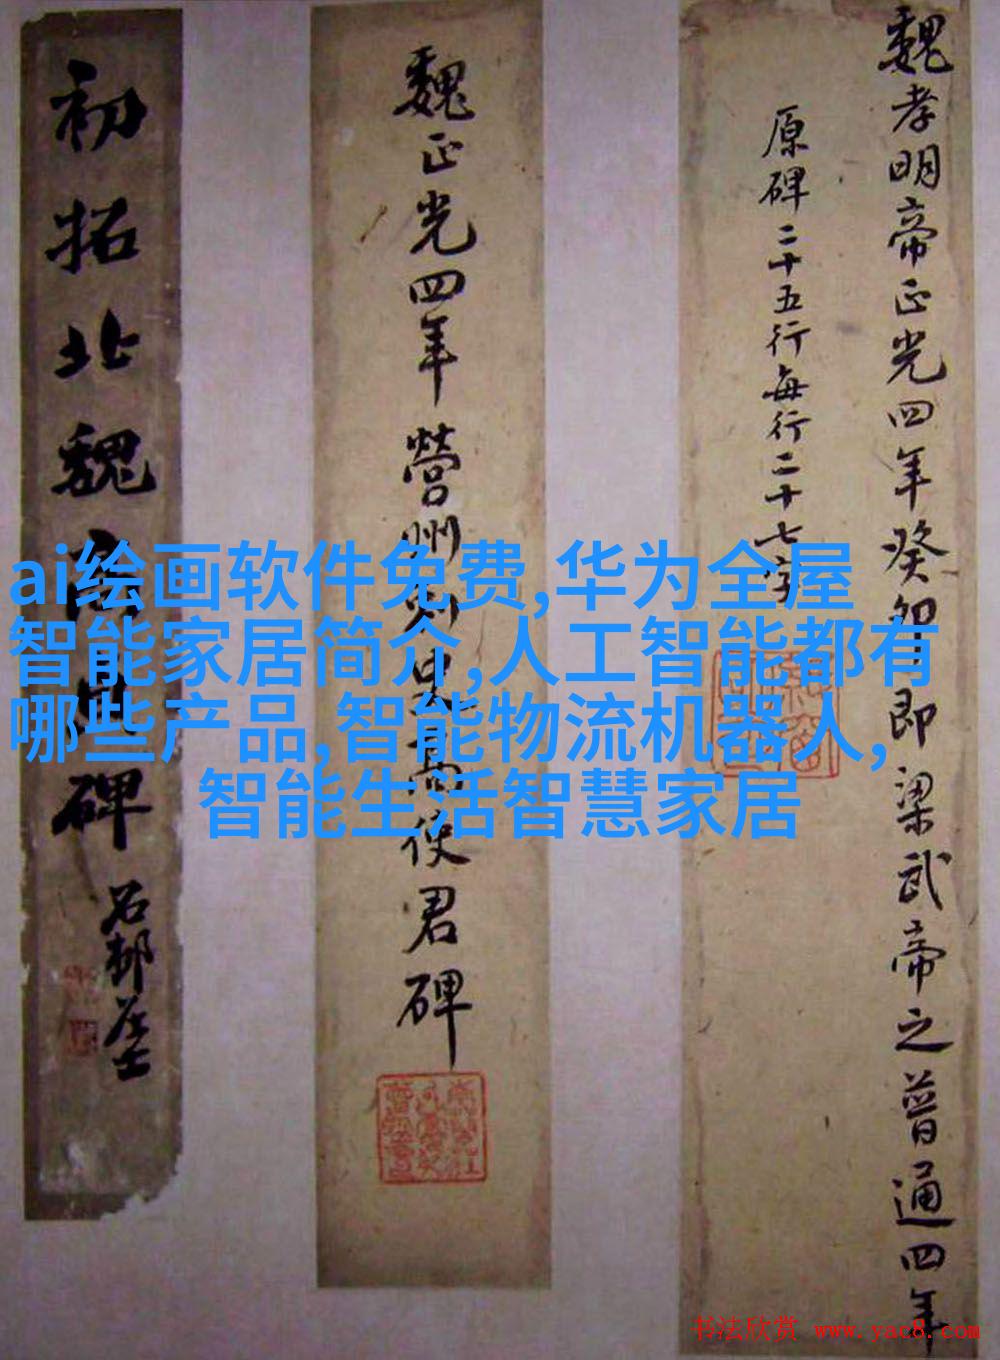 魏孝明帝正光四年癸卯即梁武帝之普通四年
原碑二十五行每行二十七字
魏正光四年營州刺史高使君碑
初拓北魏高貞碑
石邨居士
ai绘画软件免费,华为全屋
智能家居简介,人工智能都有
哪些产品,智能物流机器人,
智能生活智慧家居
书法欣赏 www.yac8.com